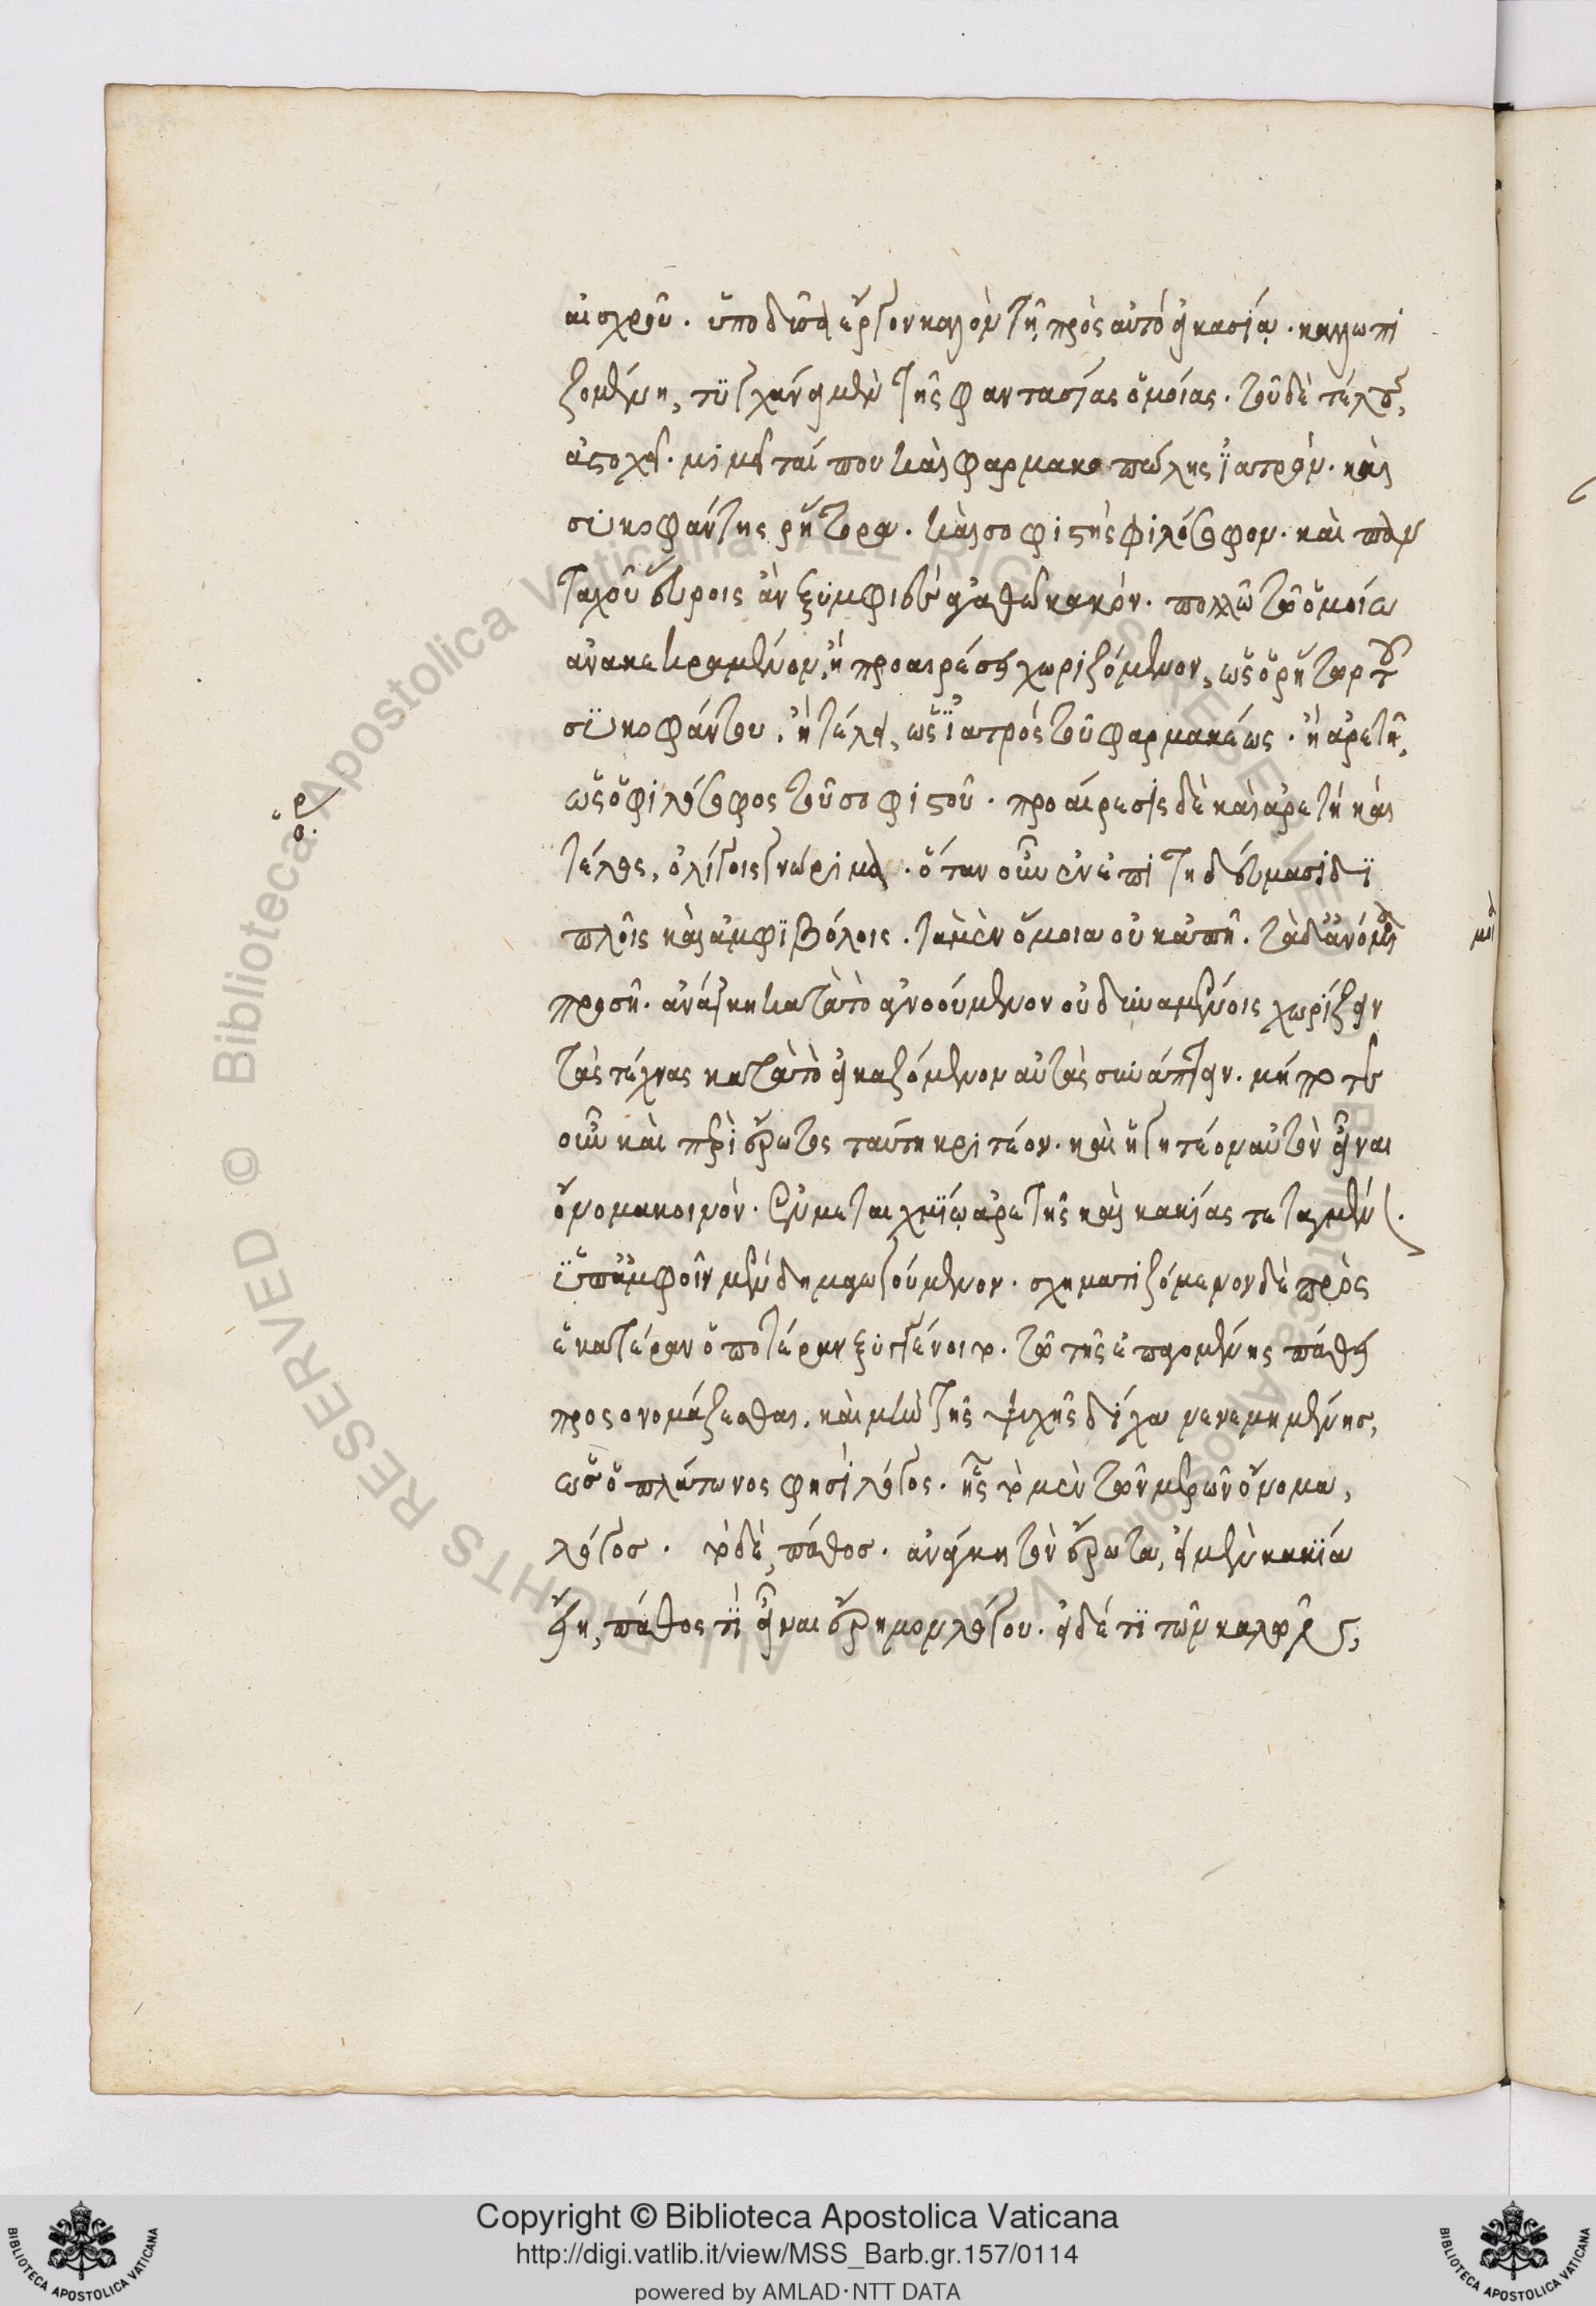 αἰσχροῦ. ὑποδύσα ἔργον καλὸν τῇ πρὸς αὐτὸ εἰκασίᾳ. καλλωπι
ζομένη, τυγχάνει μὲν τῆς φαντασίας ὁμοίας. τοῦ δὲ τέλους,
ἀστοχεῖ. μιμεῖταί που καὶ φαρμακοπώλης ἰατρόν. καὶ
συκοφάντης ῥήτορα. καὶ σοφιστὴς φιλόσοφον. καὶ παν
ταχοῦ εὕροις ἂν ξυμφυὲς ἀγαθῷ κακόν. πολλῷ τῷ ὁμοίῳ
ἀνακεκραμένον, ἢ προαιρέσει χωριζόμενον, ὡς ὁ ῥήτωρ τοῦ
συκοφάντου. ἢ τέλει, ὡς ἰατρὸς τοῦ φαρμακέως. ἢ ἀρετῇ,
ὡς ὁ φιλόσοφος τοῦ σοφιστοῦ. προαίρεσις δὲ καὶ ἀρετὴ καὶ
τέλος, ὀλίγοις γνώριμα. ὅταν οὖν ἐν ἐπιτηδεύμασι δι
πλοῖς καὶ ἀμφιβόλοις. τὰ μὲν ὅμοια οὐκ ἀπῇ. τὰ δ' ἀνόμοια
προσῇ. ἀνάγκη κατὰ τὸ ἀγνοούμενον οὐ δυναμένοις χωρίζειν
τὰς τέχνας κατὰ τὸ εἰκαζόμενον αὐτὰς συνάπτειν. μήποτε
οὖν καὶ περὶ ἔρωτος ταύτῃ κριτέον. καὶ ἡγητέον αὐτὸν εἶναι
ὄνομα κοινὸν. ἐν μεταιχμίῳ ἀρετῆς καὶ κακίας τεταγμέν(.
ὑπ' ἀμφοῖν μὲν δημαγωγούμενον. σχηματιζόμενον δὲ πρὸς
ἑκατέραν ὁποτέραν ξυγγένοιτο. τῷ τῆς ἐπαγομένης πάθει
προσονομάζεσθαι. καὶ μὴν τῆς ψυχῆς δίχα νενεμημένης,
ὡς ὁ πλάτωνός φησι λόγος. ἧς τὸ μὲν τῶν μερῶν ὄνομα,
λόγος. τὸ δὲ, πάθος. ἀνάγκη τὸν ἔρωτα, εἰ μὲν κακία
εἴη, πάθος τι εἶναι ἔρημον λόγου. εἰ δέ τι τῶν καλῶν,